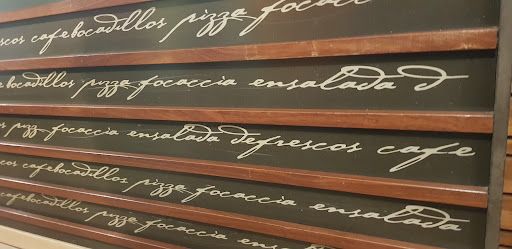 escos cafebocadillos pizza focacc
bocadillos pizza focaccia ensalada d
os pizz focaccia ensalada defrescos cafe
scos cafebocadillos pizza focaccia ensalada
frescos cafebocadillos pizza focaccia ens